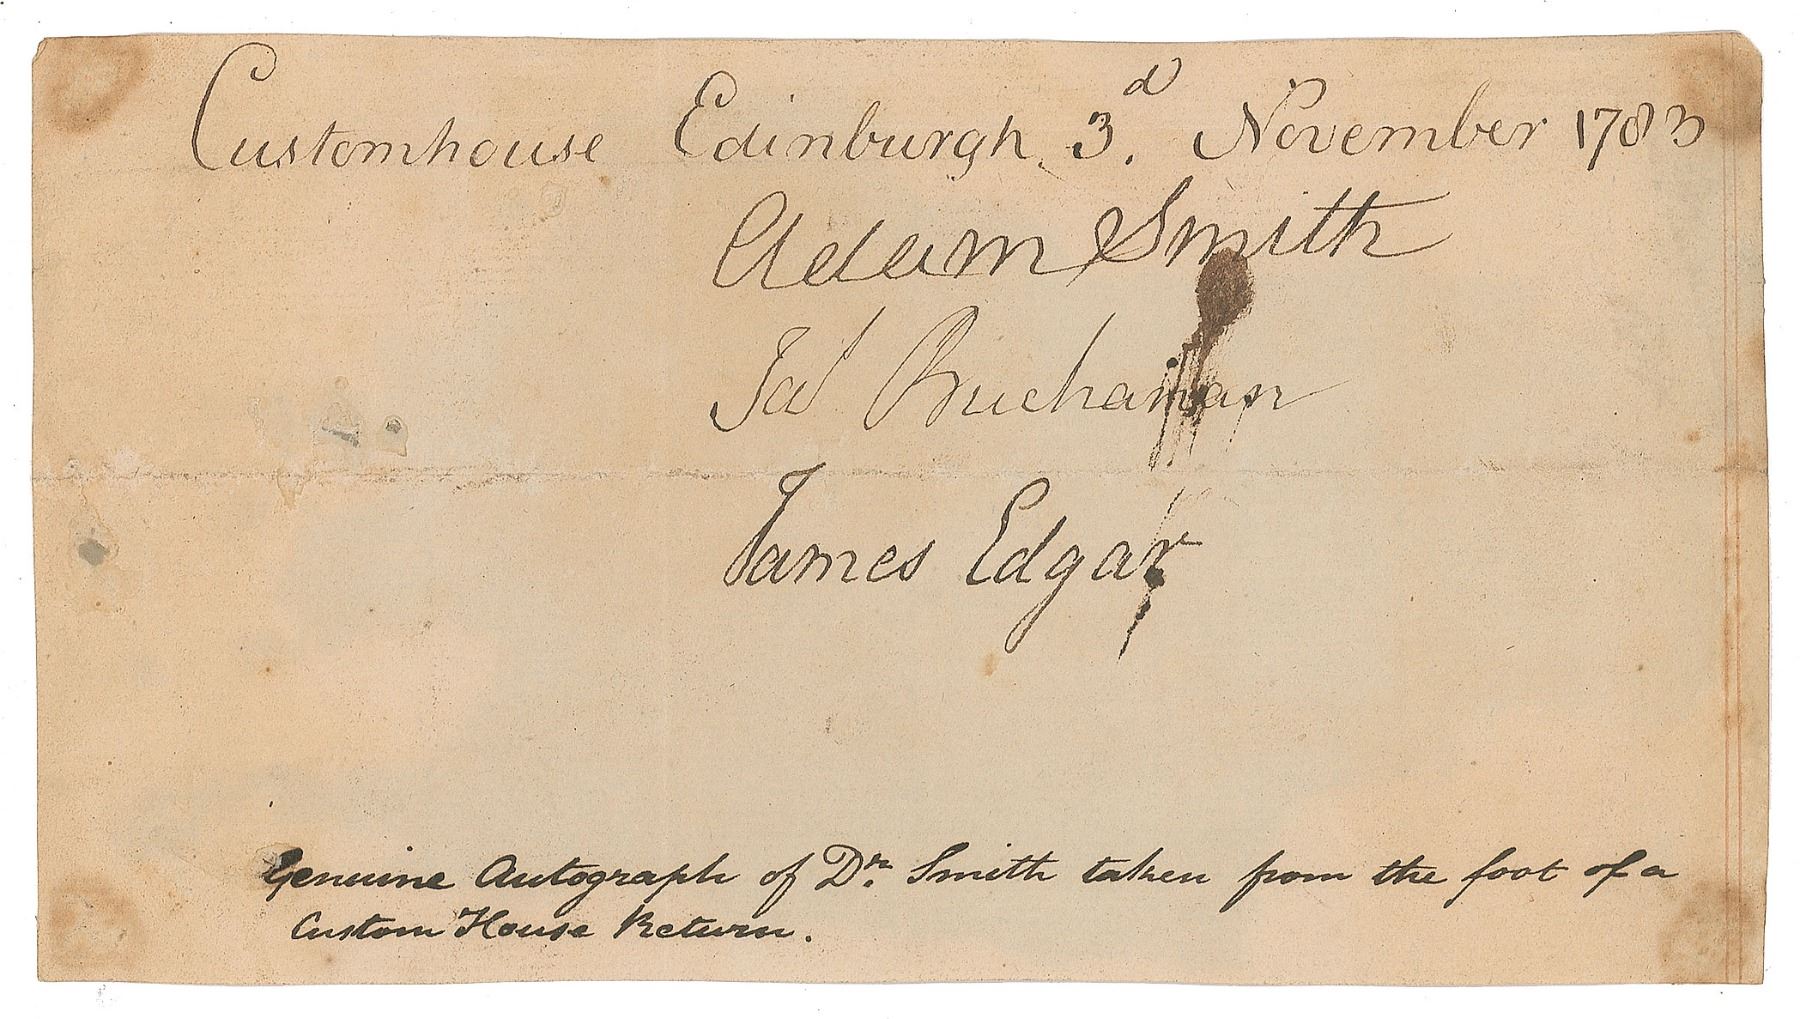 Customhouse Edinburgh 3.d November 1783
Adam Smith
Jas Buchanan
James Edgar
Genuine Autograph of Dr. Smith taken from the foot of a
Custom House Return.